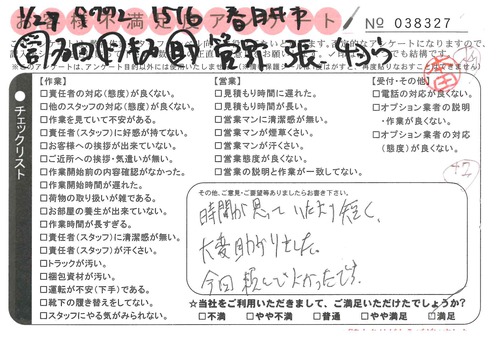 お客様不満足アンケート
No 038327
1/27
1576 春日井市
【作業】
□責任者の対応(態度)が良くない。
□他のスタッフの対応(態度)が良くない。
□作業を見ていて不安がある。
□責任者(スタッフ)に好感が持てない。
□お客様への挨拶が出来ていない。
□ご近所への挨拶・気遣いが無い。
□作業開始前の内容確認がなかった。
□作業開始時間が遅れた。
□荷物の取り扱いが雑である。
□お部屋の養生が出来ていない。
□作業時間が長すぎる。
□責任者(スタッフ)に清潔感が無い。
□責任者(スタッフ)が汗くさい。
□トラックが汚い。
□梱包資材が汚い。
□運転が不安(下手)である。
□靴下の履き替えをしてない。
□スタッフにやる気がみられない。
【営業】
□見積もり時間に遅れた。
□見積もり時間が長い。
□営業マンに清潔感が無い。
□営業マンが煙草くさい。
□営業マンが汗くさい。
□営業態度が良くない。
□営業の説明と作業が一致してない。
【受付・その他】
□電話の対応が良くない。
□オプション業者の説明・作業が良くない。
□オプション業者の対応(態度)が良くない。
チェックリスト
その他、ご意見・ご要望等ありましたらお書き下さい。
時間が思っていたより短く、
大変助かりました。
今回頼んでよかったです。
☆当社をご利用いただきまして、ご満足いただけたでしょうか?
□不満 □やや不満 □普通 □やや満足 □満足